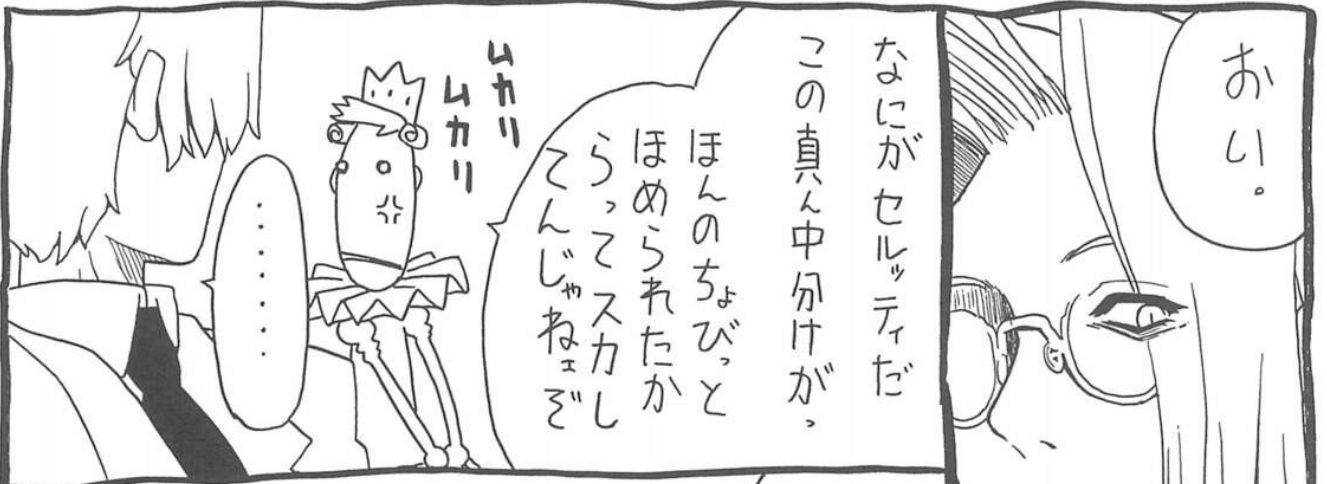 おい.
なにがセルッティだ
この真ん中分けがっ
ほんのちょびっと
ほめられたか
らってスカし
てんじゃねェぞ
ムカリ
ムカリ
・・・・・・・